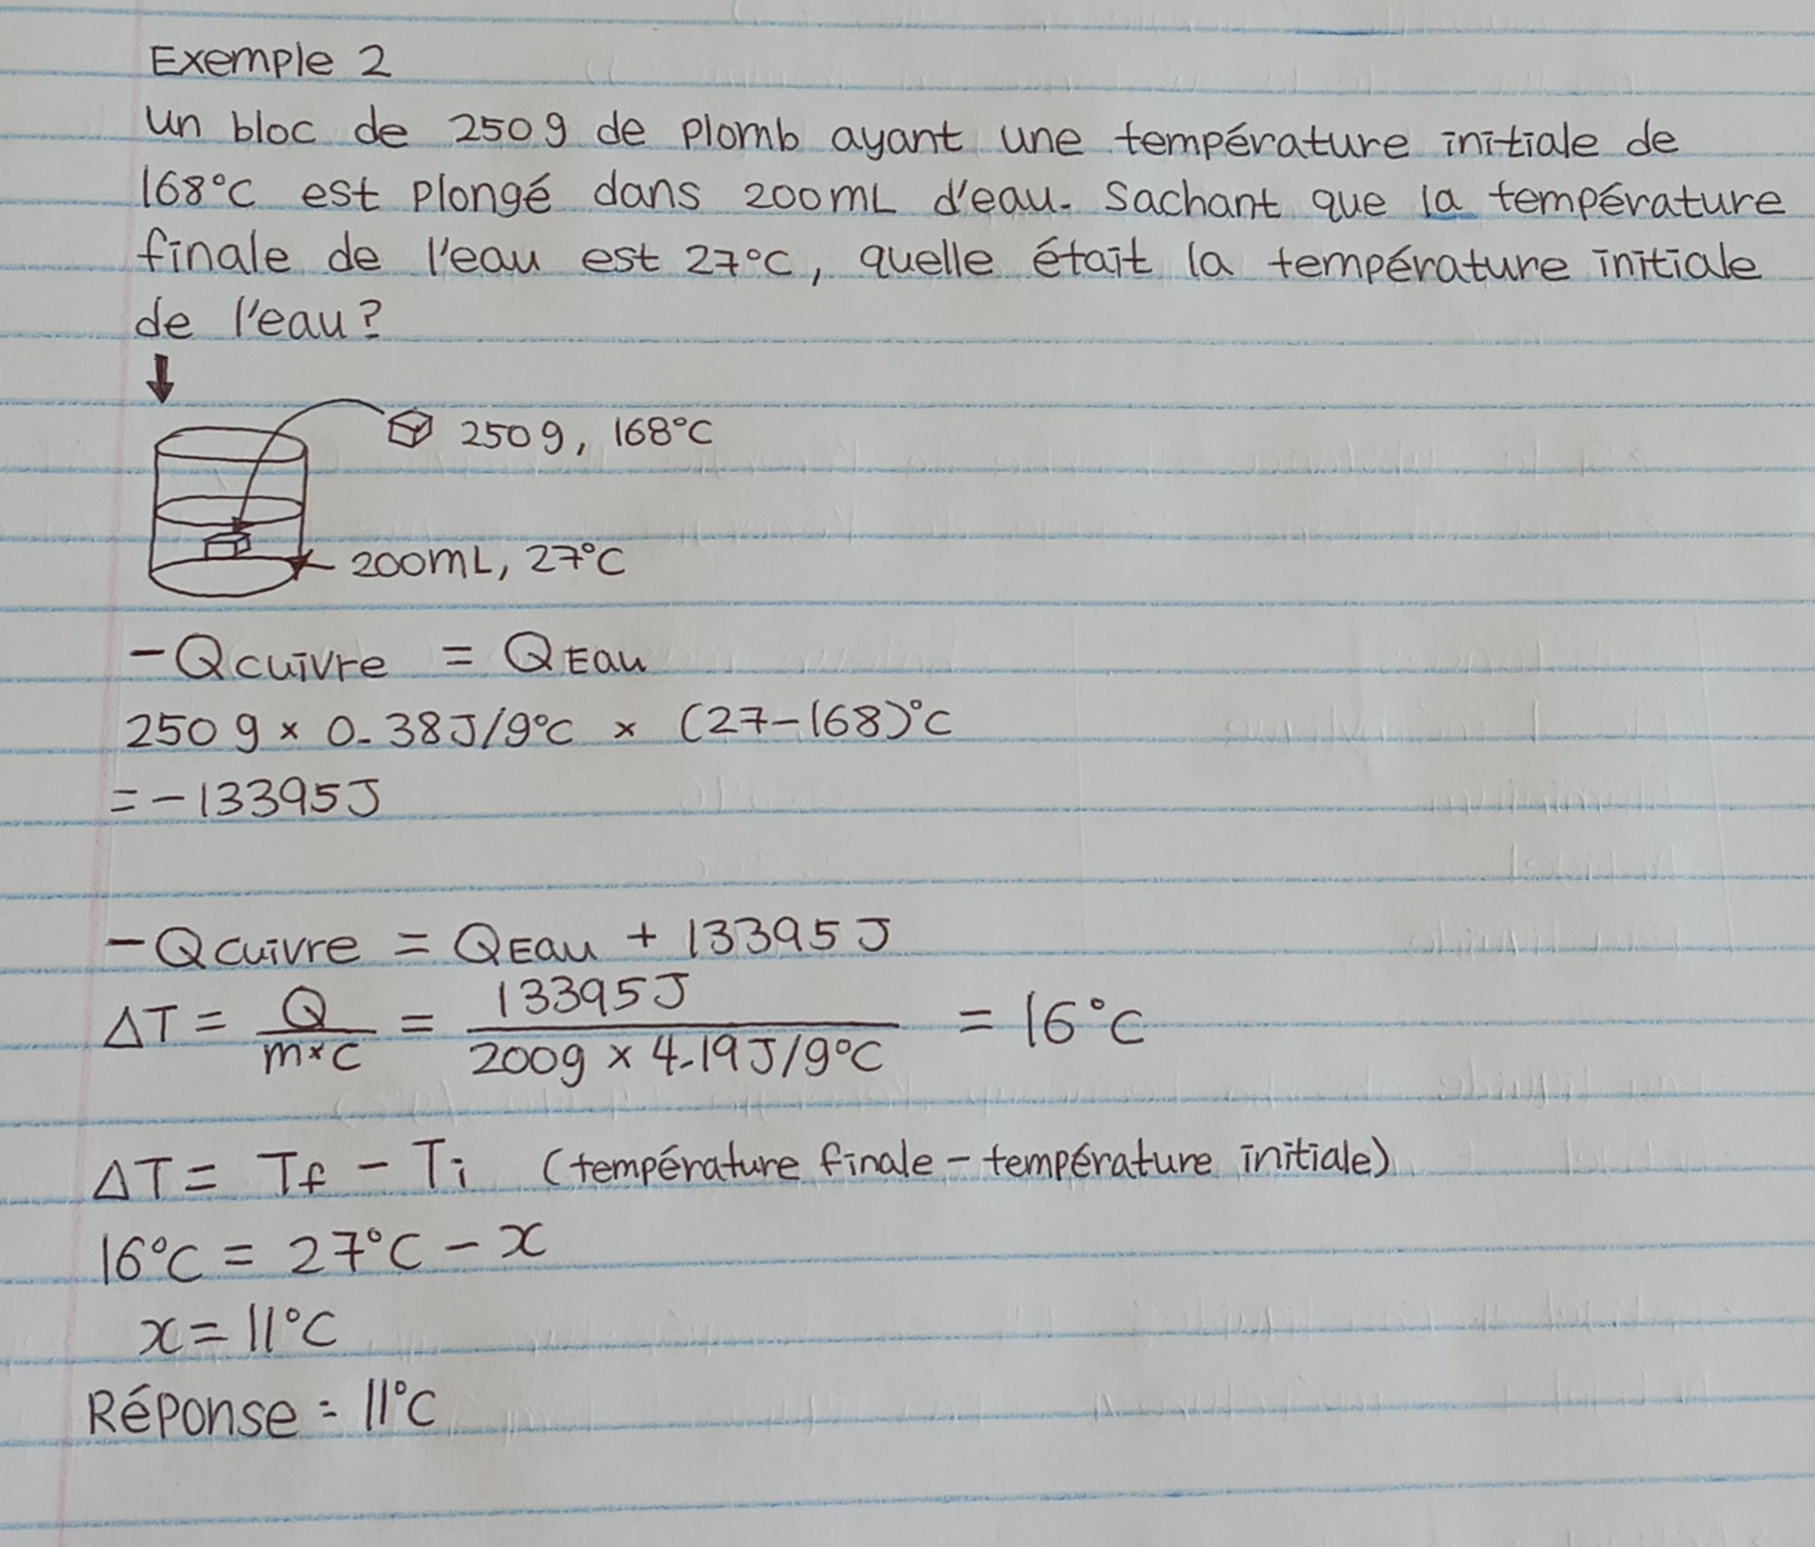 Exemple 2
Un bloc de 250g de plomb ayant une température initiale de
168°C est plongé dans 200mL d'eau. Sachant que la température
finale de l'eau est 27°C, quelle était la température initiale
de l'eau?
↓
250g, 168°C
200mL, 27°C
-Qcuivre = QEau
250g × 0.38J/g°C × (27-168)°C
= -13395J
-Qcuivre = QEau + 13395J
ΔT = Q/m×c = 13395J/200g × 4.19J/g°C = 16°C
ΔT = Tf - Ti (température finale - température initiale)
16°C = 27°C - x
x = 11°C
Réponse = 11°C